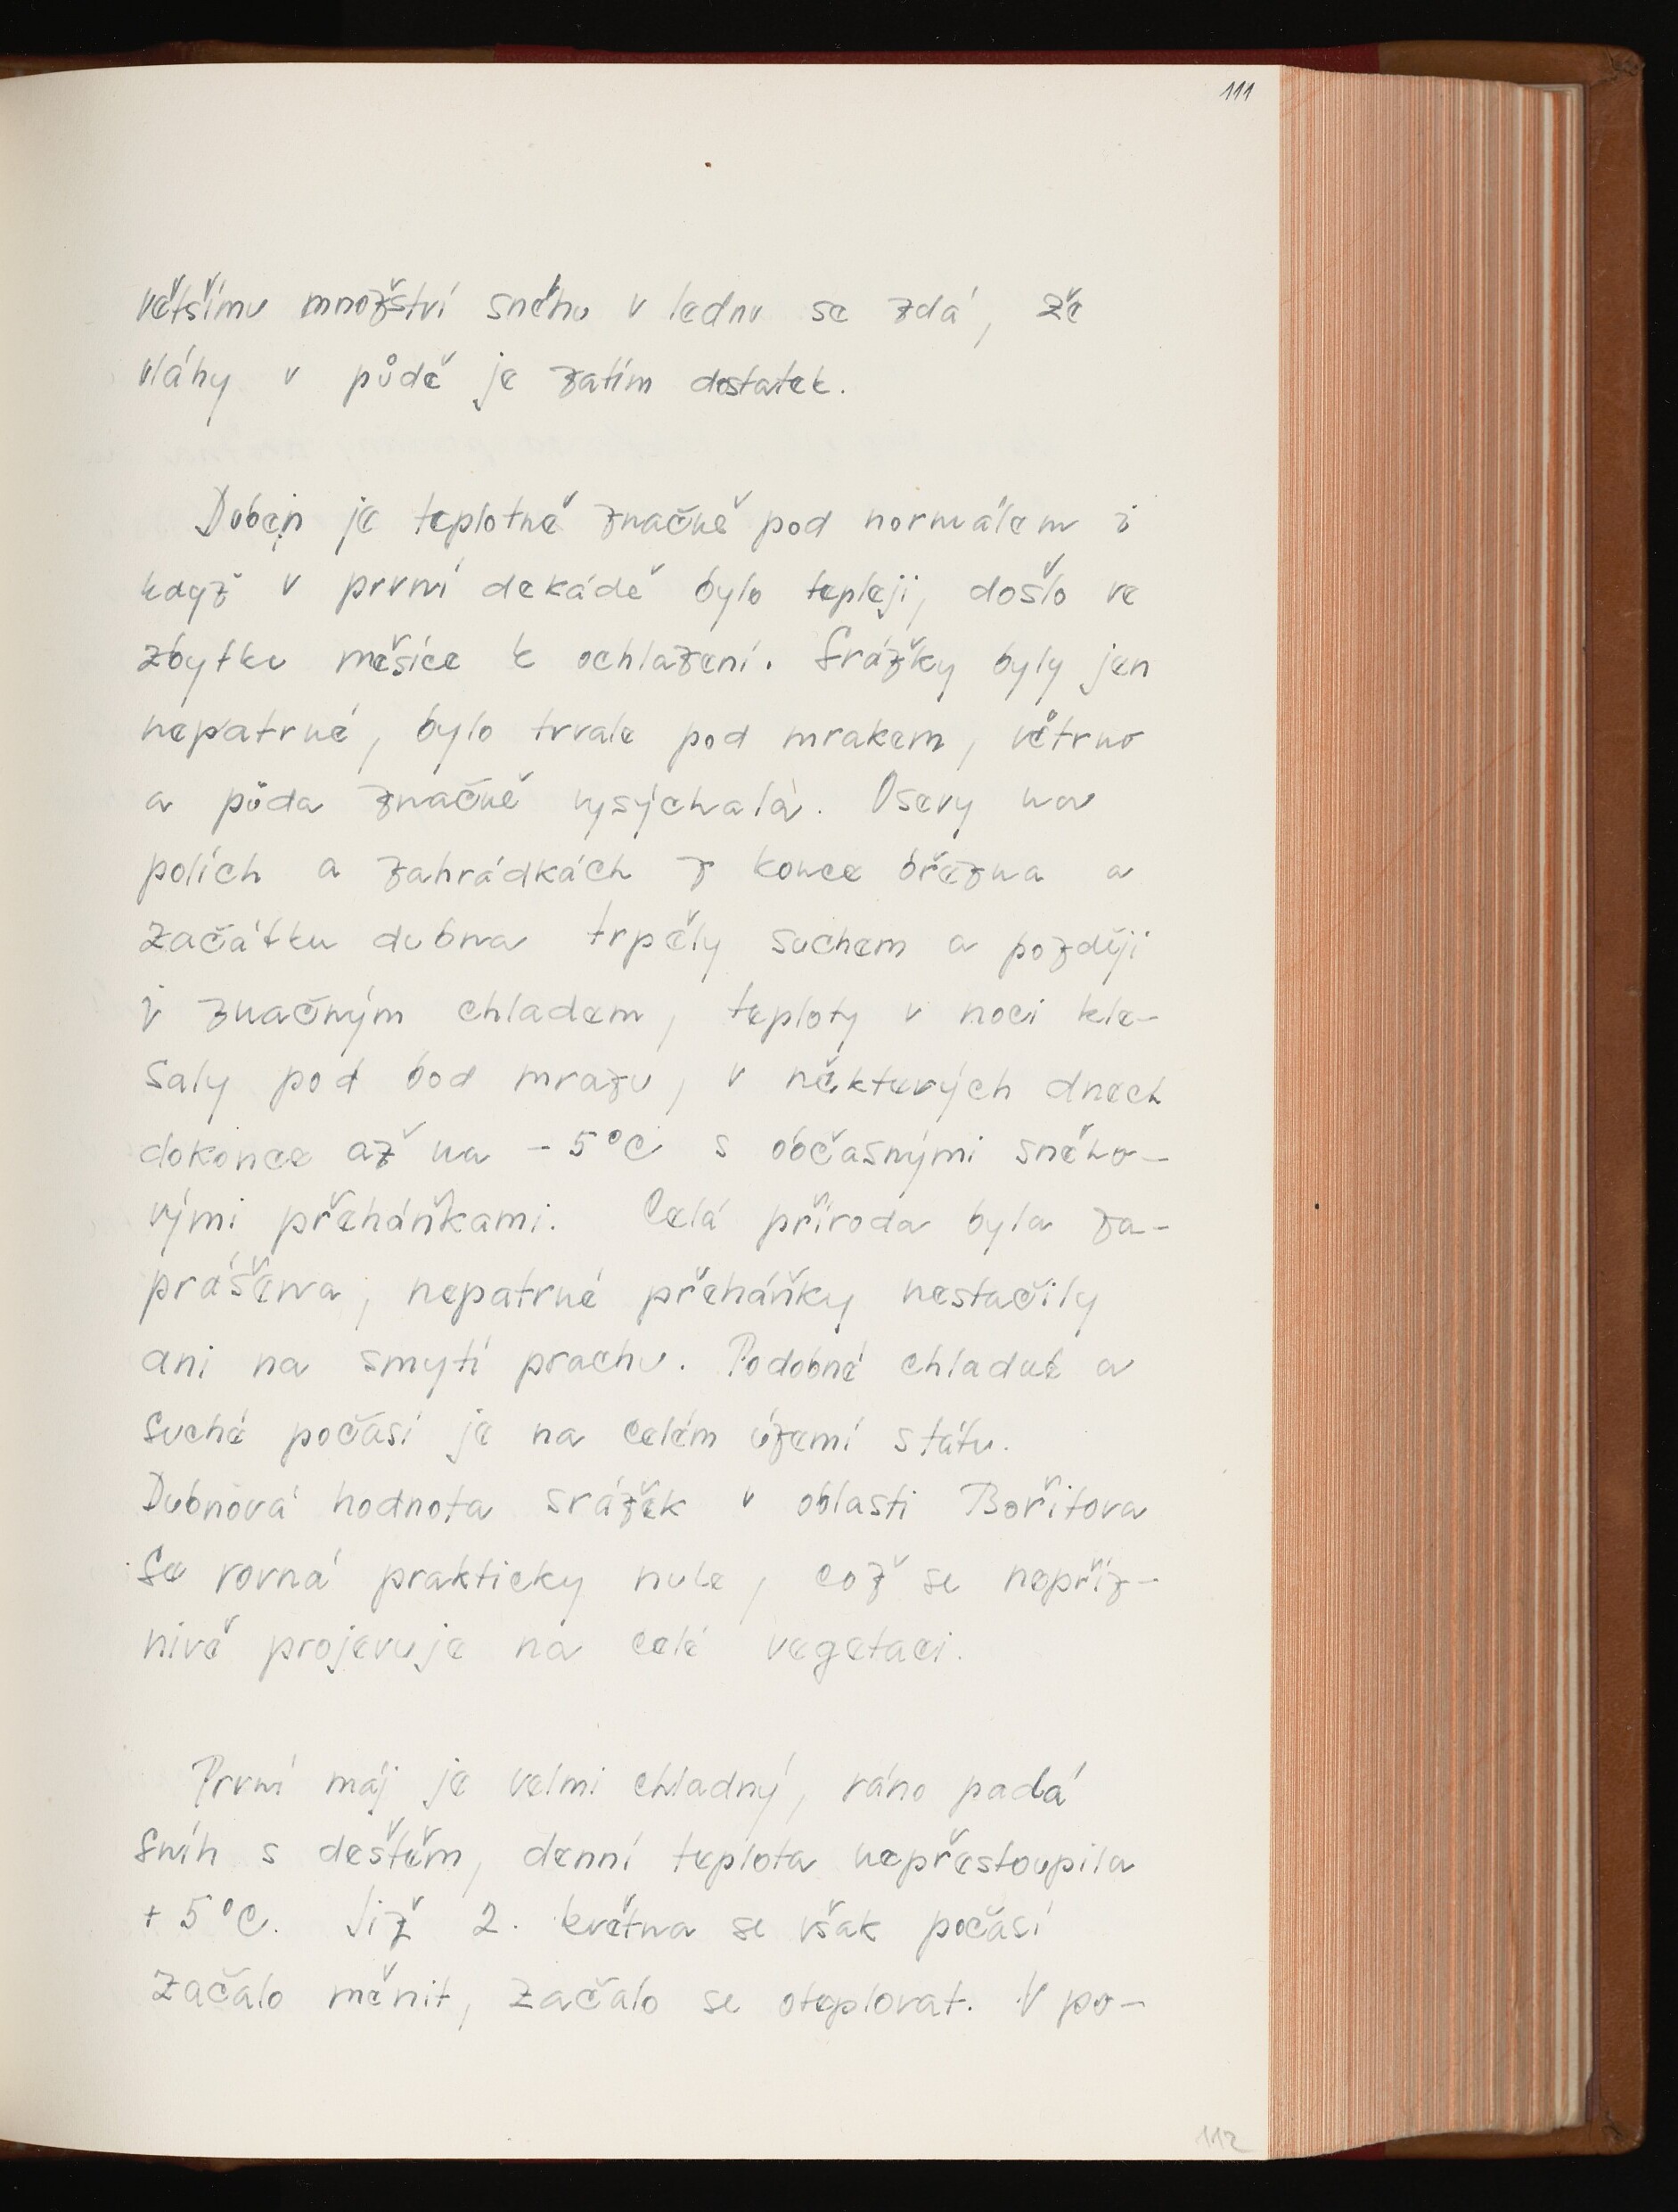 111
většímu množství sněhu v lednu se zdá, že
vláhy v půdě je zatím dostatek.
Duben je teplotně značně pod normálem i
když v první dekádě bylo tepleji, došlo ve
zbytku měsíce k ochlazení. Srážky byly jen
nepatrné, bylo trvale pod mrakem, větrno
a půda značně vysýchala. Osevy na
polích a zahrádkách z konce března a
začátku dubna trpěly suchem a později
i značným chladem, teploty v noci kle-
saly pod bod mrazu, v některých dnech
dokonce až na -5°C s občasnými sněho-
vými přeháňkami. Celá příroda byla za-
prášena, nepatrné přeháňky nestačily
ani na smytí prachu. Podobné chladné a
suché počasí je na celém území státu.
Dubnová hodnota srážek v oblasti Bořitova
se rovná prakticky nule, což se nepříz-
nivě projevuje na celé vegetaci.
První máj je velmi chladný, ráno padá
sníh s deštěm, denní teplota nepřestoupila
+5°C. Již 2. května se však počasí
začalo měnit, začalo se oteplovat. V po-
112